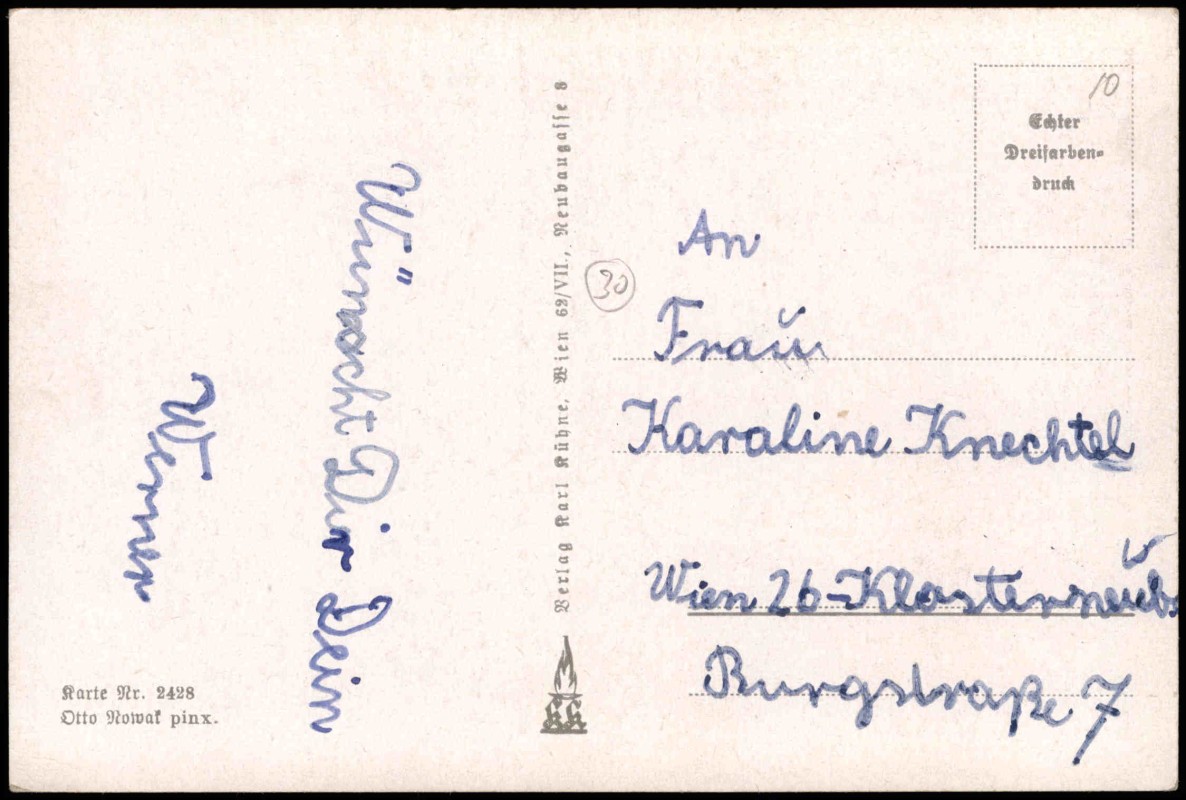 Wünscht Dir Dein
Werner
Karte Nr. 2428
Otto Nowak pinx.
Verlag Karl Kühne, Wien 62/VII., Neubaugasse 8
KK
30
10
Echter
Dreifarben-
druck
An
Frau
Karaline Knechtel
Wien 26-Klosterneub.
Burgstraße 7